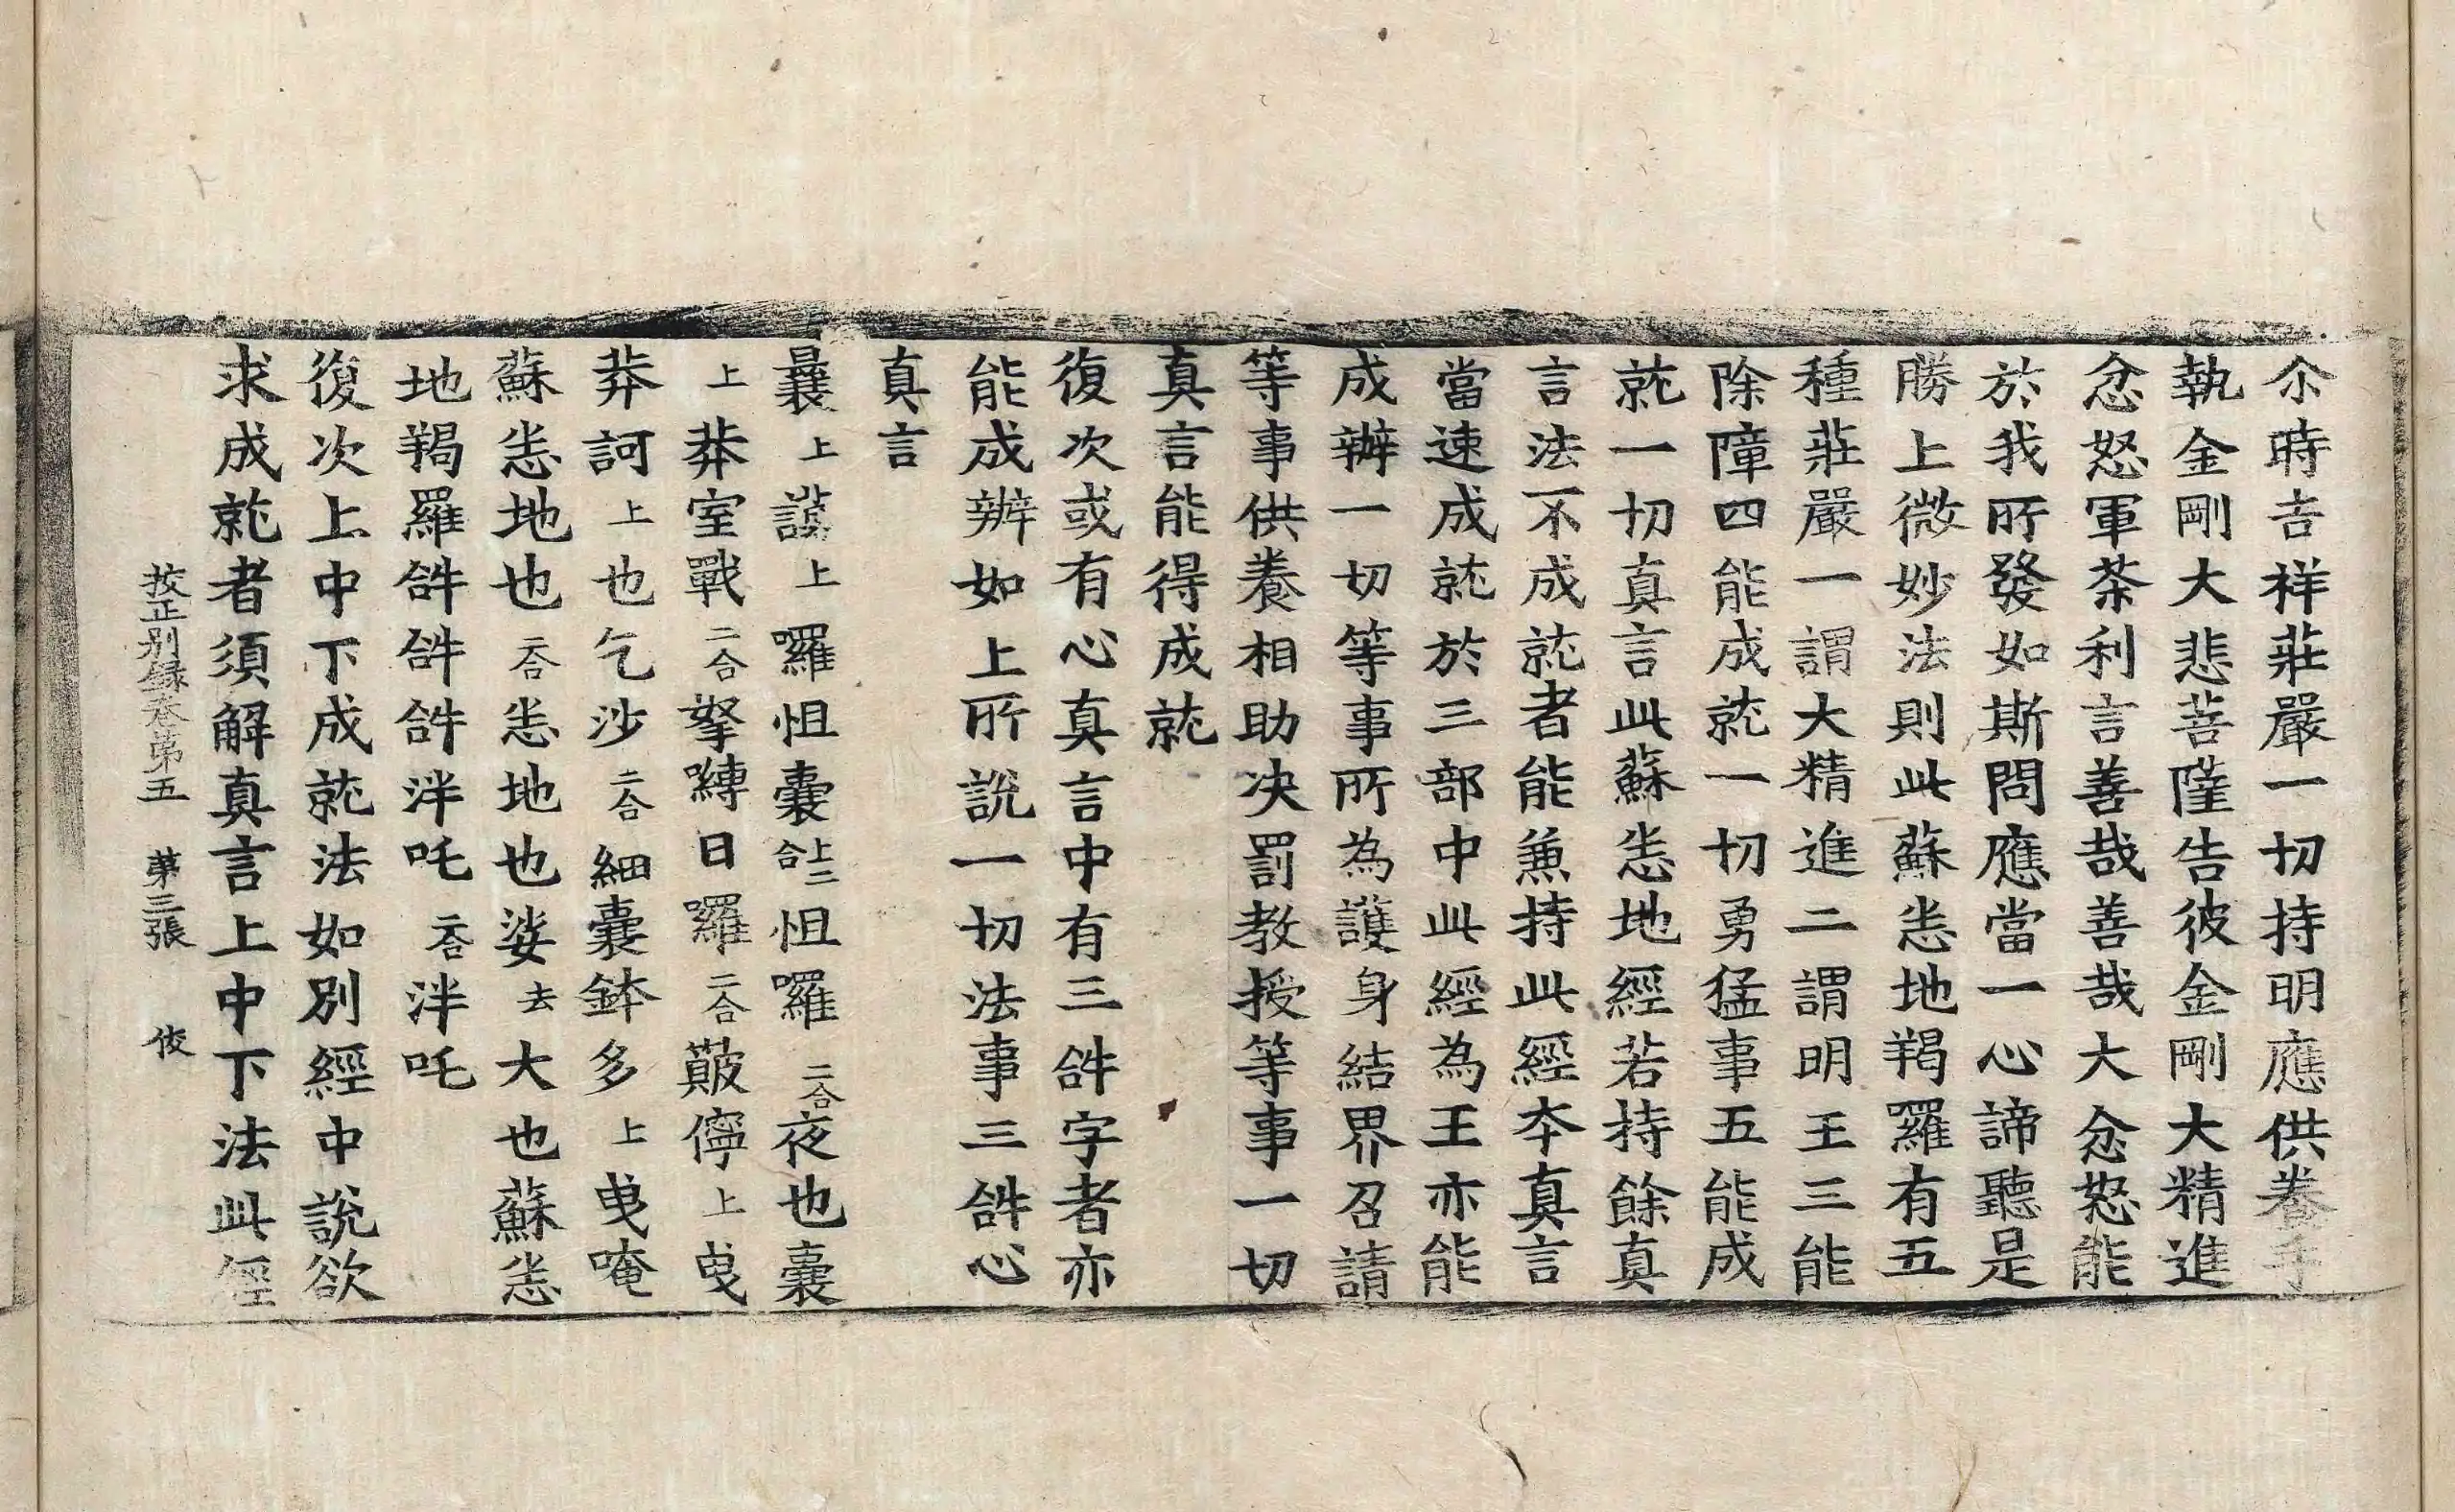 尒時吉祥莊嚴一切持明應供養手
執金剛大悲菩薩告彼金剛大精進
忿怒軍荼利言善哉善哉大忿怒能
於我所發如斯問應當一心諦聽是
勝上微妙法則此蘇悉地羯羅有五
種莊嚴一謂大精進二謂明王三能
除障四能成就一切勇猛事五能成
就一切真言此蘇悉地經若持餘真
言法不成就者能兼持此經夲真言
當速成就於三部中此經為王亦能
成辦一切等事所為護身結界召請
等事供養相助决罰教授等事一切
真言能得成就
復次或有心真言中有三𤙖字者亦
能成辦如上所說一切法事三𤙖心
真言
曩上謨上囉怛囊上二合怛囉二合夜也囊
上莽室戰二合拏嚩日囉二合簸儜上曳
莽訶上也乞沙二合細囊鉢多上曳唵
蘇悉地也二合悉地也娑去大也蘇悉
地羯羅𤙖𤙖𤙖泮吒二合泮吒
復次上中下成就法如別經中說欲
求成就者須解真言上中下法此經
挍正别録卷苐五　苐三張　俊